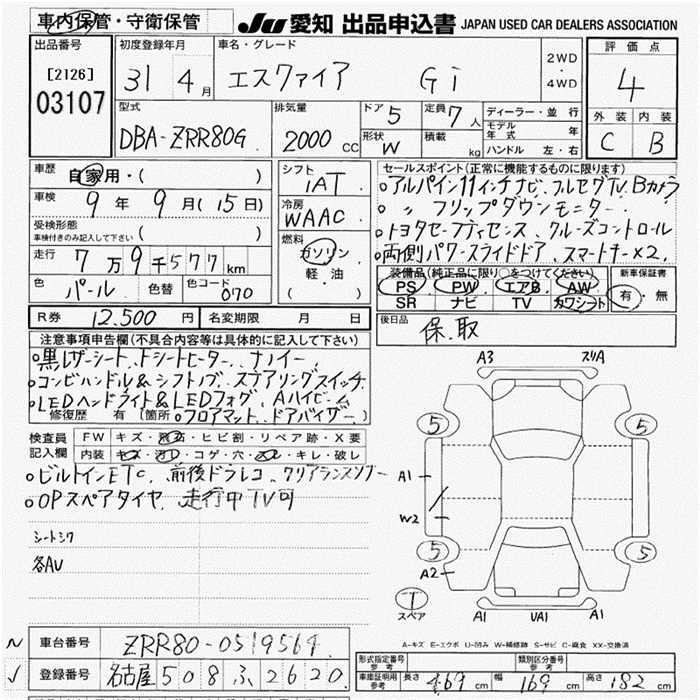 車内保管・守衛保管 JU 愛知 出品申込書 JAPAN USED CAR DEALERS ASSOCIATION
出品番号 初度登録年月 車名・グレード 2WD・4WD 評価点
[2126] 03107 31 4月 エスクァイア Gi 4
型式 排気量 ドア 5 定員 7人 ディーラー・並行 外装 内装
DBA-ZRR80G 2000 CC 形状 W 積載 kg モデル年式 年 C B
ハンドル 左・右
車歴 自家用・( ) シフト IAT セールスポイント(正常に機能するものに限ります)
車検 9年 9月(15日) 冷房 WAAC ○アルパイン11インチナビ フルセグTV. Bカメラ
○ 〃 フリップダウンモニター
受検形態 車検付きのみ記入して下さい ( ) 燃料 ガソリン・軽油 ( ) ○トヨタセーフティセンス、クルーズコントロール
走行 7万9千577km ○両側パワースライドドア、スマートキー×2,
色 パール 色替 色コード 070 装備品(純正品に限り○をつけてください) 新車保証書
PS PW エアB AW 有・無
SR ナビ TV カワシート
R券 12,500円 名変期限 月 日 後日品 保.取
注意事項申告欄(不具合内容等は具体的に記入して下さい)
○黒レザーシート、Fシートヒーター、ナノイー
○コンビハンドル&シフトノブ、ステアリングスイッチ
○LEDヘッドライト&LEDフォグ、Aハイビーム
修復歴 有 (箇所 ○フロアマット、ドアバイザー)
検査員記入欄 FW キズ・飛石・ヒビ割・リペア跡・X要
内装 キズ・汚レ・コゲ・穴・スレ・キレ・破レ
○ビルトインETC、前後ドラレコ、クリアランスソナー
○OPスペアタイヤ、走行中TV可
シートシワ
各AU
A3 スリA
5 5
A1
W2
5 5
A2
T スペア A1 UA1 A1
A-キズ E-エクボ U-凹み W-補修跡 S-サビ C-腐食 XX-交換済
車台番号 ZRR80-0519564
登録番号 名古屋 508 ふ 2620
形式指定番号 参考 類別区分番号 参考
車庫証明用 参考 長さ 469cm 幅 169cm 高さ 182cm